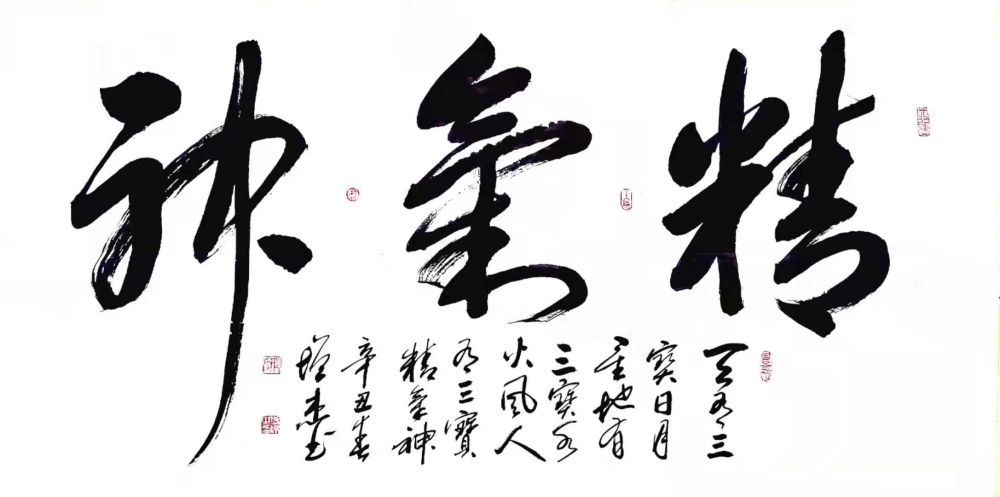 精氣神
天有三
寶日月
星地有
三寶水
火風人
有三寶
精氣神
辛丑春
杰书